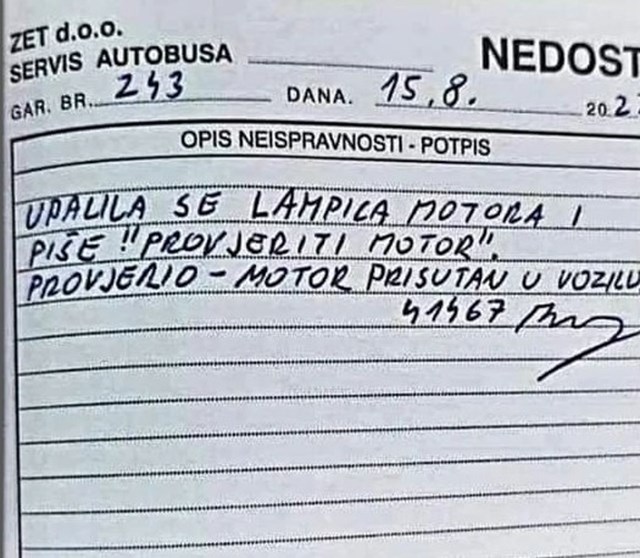 ZET d.o.o.
SERVIS AUTOBUSA NEDOST
GAR. BR. 243 DANA. 15.8. 202
OPIS NEISPRAVNOSTI - POTPIS
UPALILA SE LAMPICA MOTORA I
PIŠE "PROVJERITI MOTOR".
PROVJERIO - MOTOR PRISUTAN U VOZILU
41467